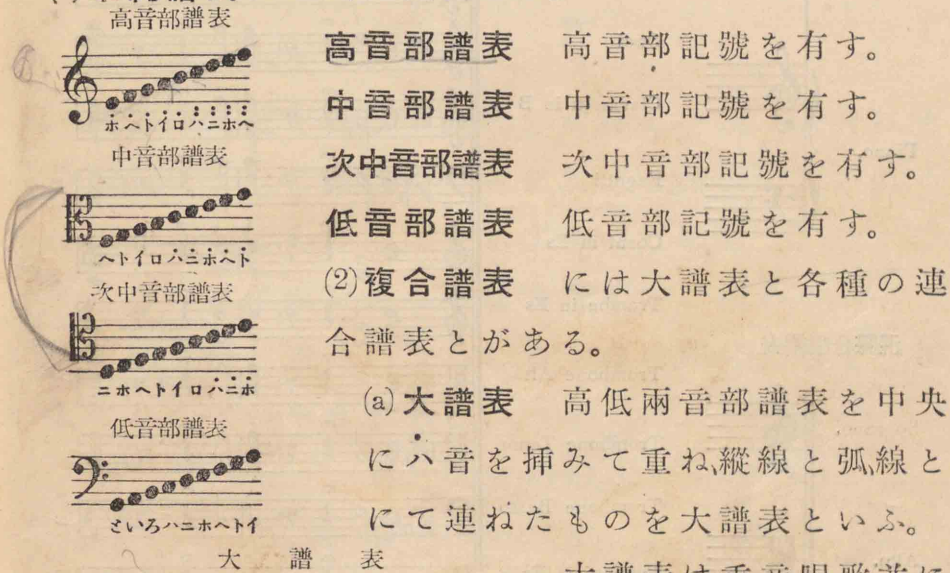 高音部譜表
ホヘトイロハニホヘ
中音部譜表
ヘトイロハニホヘト
次中音部譜表
ニホヘトイロハニホ
低音部譜表
といろハニホヘトイ
大譜表
高音部譜表 高音部記號を有す。
中音部譜表 中音部記號を有す。
次中音部譜表 次中音部記號を有す。
低音部譜表 低音部記號を有す。
(2)複合譜表 には大譜表と各種の連
合譜表とがある。
(a)大譜表 高低兩音部譜表を中央
にハ音を挿みて重ね、縱線と弧線と
にて連ねたものを大譜表といふ。